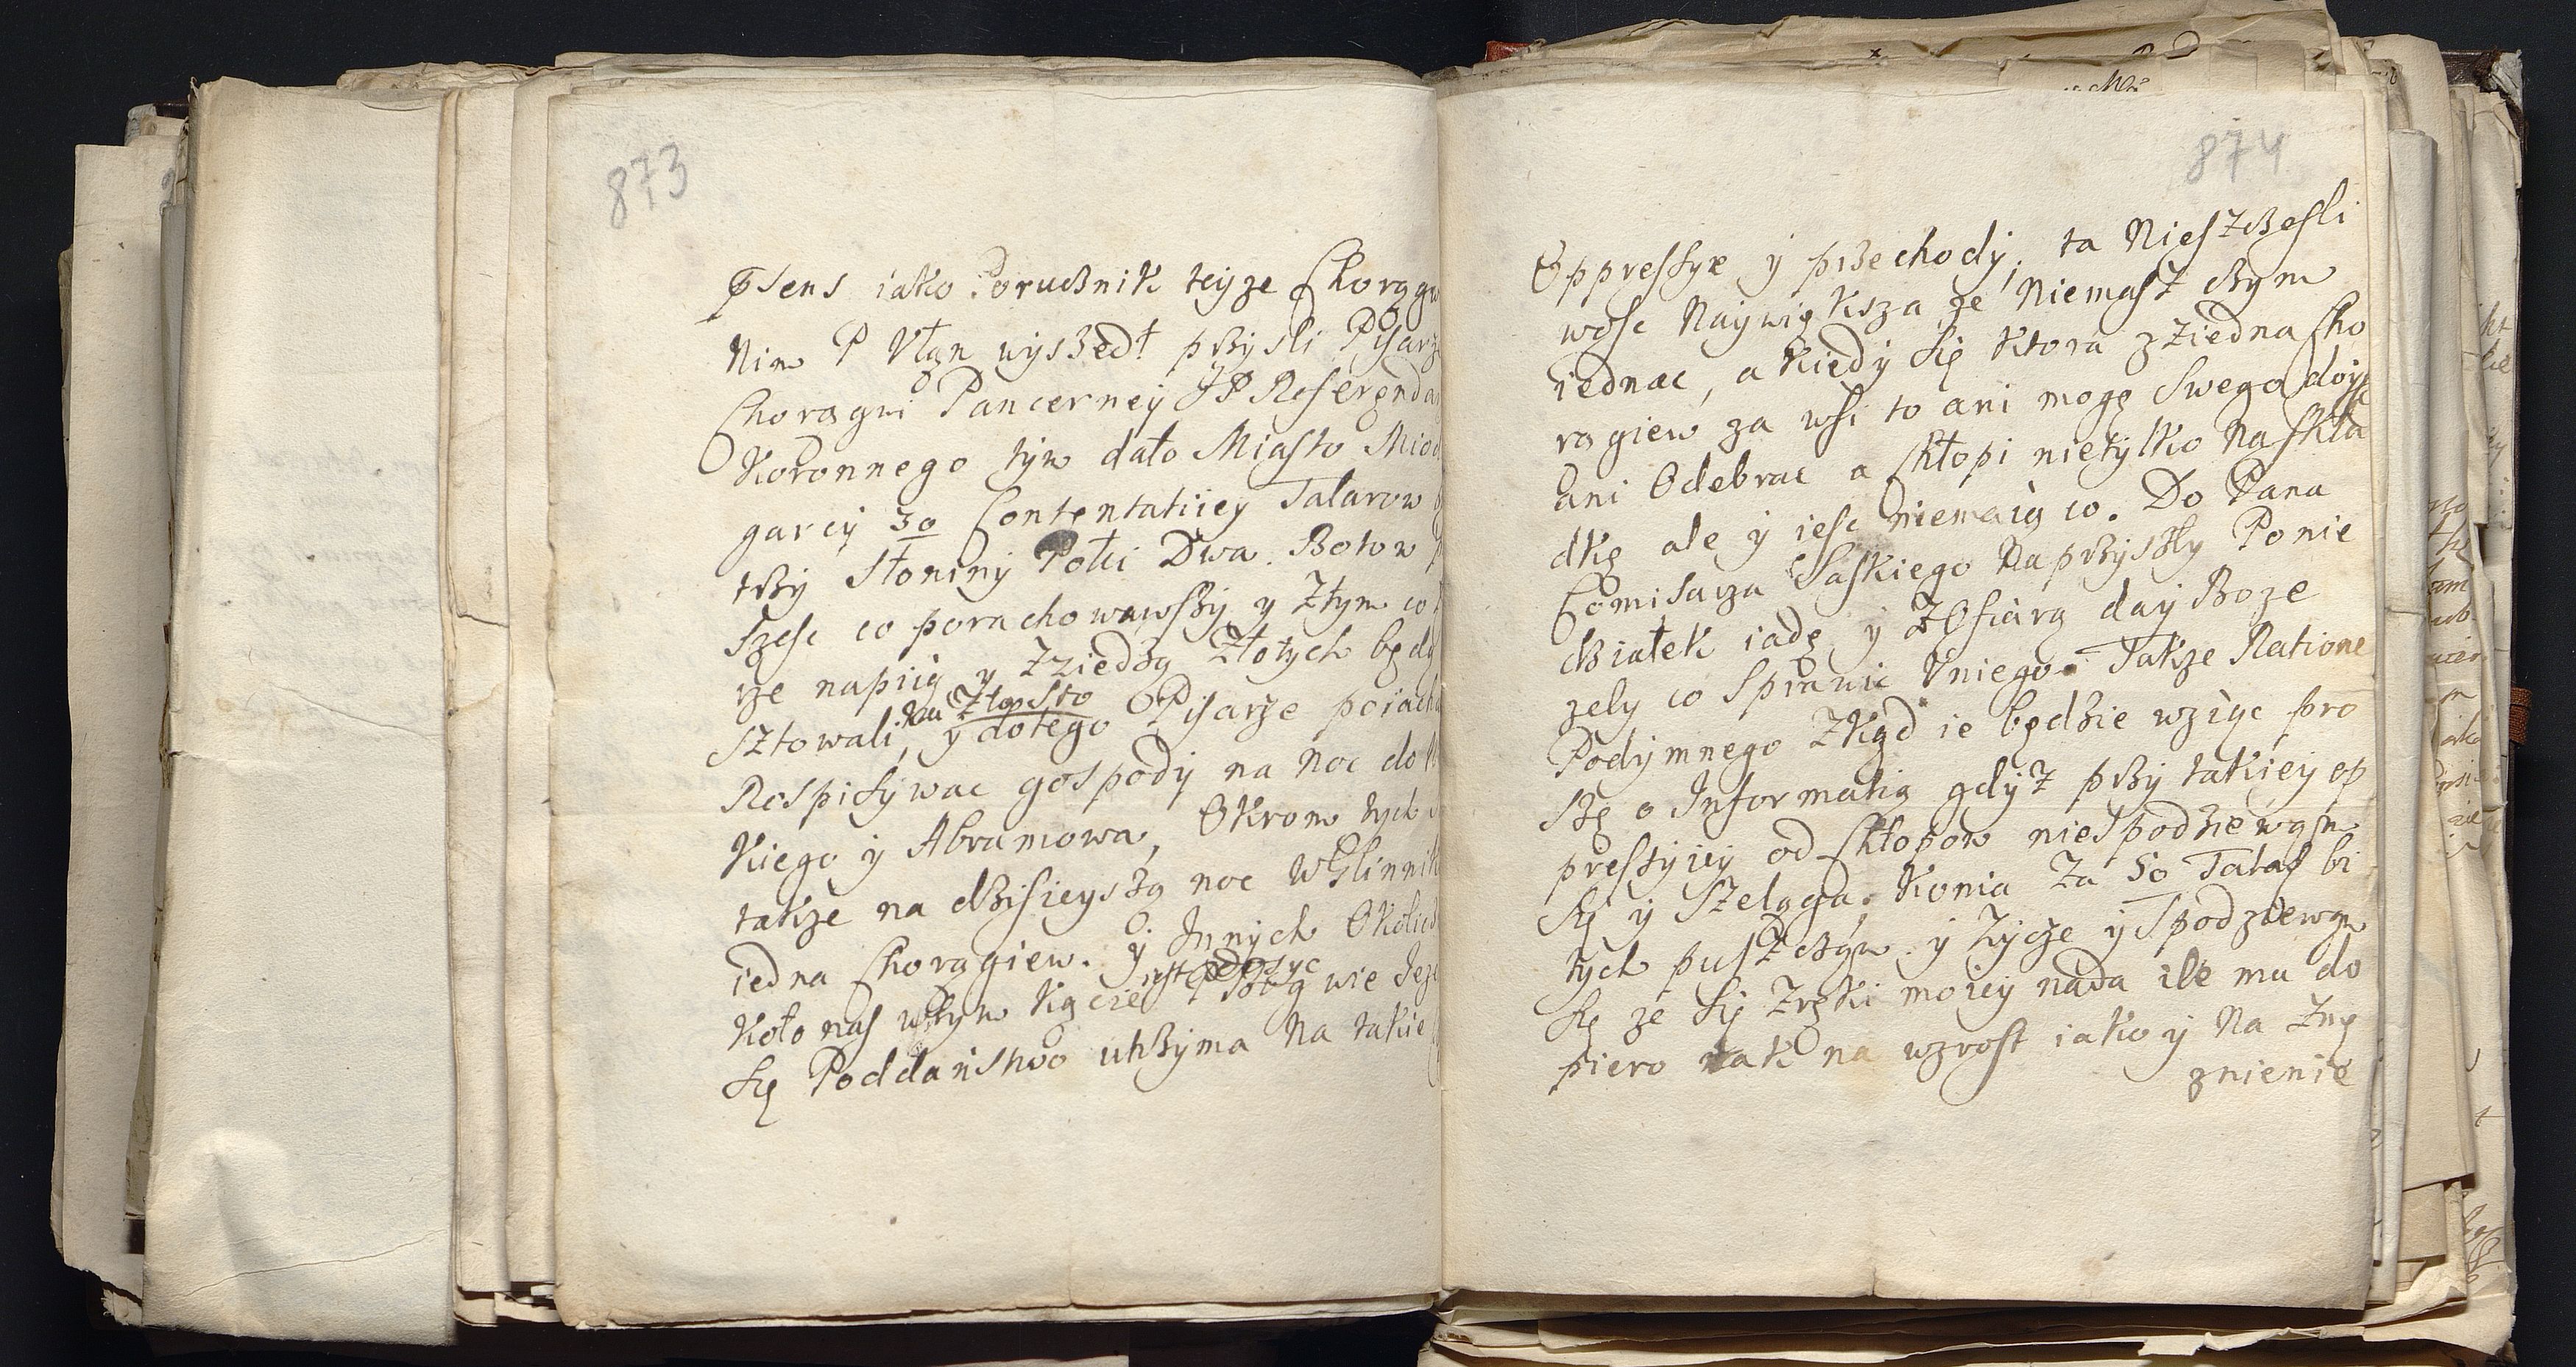 873
Psens iako Porucznik teyze Chorągw
Nim P Ułan wyszedł przysli Pisarz
Chorągwi Pancerney JP Referenda
Koronnego tym dało Miasto Miod
garcy 30 Contentatiiey Talarow
trzy Słoniny Połci Dwa. Botow
szesc co porachowawszy y Ztym co
rze napiią y Zziedzą Złotych będą
sztowali, na Złop Sto y dotego Pisarze poiacha
Rospisywac gospody na noc do
Kiego y Abramowa, Okrom tych
takze na dzisieyszą noc WGlinnik
iedna Chorągiew. y Jnnych Okolicz
Koło nas wtym Kącie iest Bog wie Jeze
Się Poddanstwo utrzyma Na takie
874
Oppressye y przechody, ta Nieszczesli
wosc Naywiększa ze Niemasz czym
iednac, a Kiedy Się Ktora zziedna Cho
rągiew za wsi to ani mogę Swego doysc
ani Odebrac a Chłopi nietylko Naskła
dkę ale y iesc niemaią co. Do Pana
Comisarza Saskiego Naprzyszły Ponie
działek iadę y ZOfiarą day Boze
zeby co Sprawic Uniego. Takze Ratione
Podymnego Zkąd ie będzie wziąc pro
szę o Informatią gdyz przy takiey op
pressyiey od Chłopow niespodziewam
Się y Szeląga. Konia Za 50 Talar bi
tych puszczam y Zycze y Spodziewam
Się ze Się Zręki moiey nada ile ma do
piero tak na wzrost iako y Na Zmę
znienie